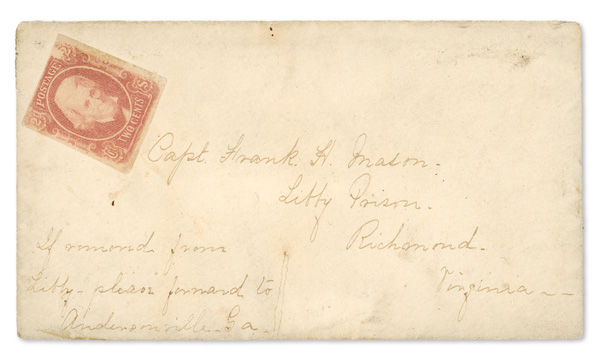 POSTAGE
TWO CENTS
Capt. Frank H. Mason.
Libby Prison.
Richmond.
Virginia
If removed from
Libby - please forward to
Andersonville Ga